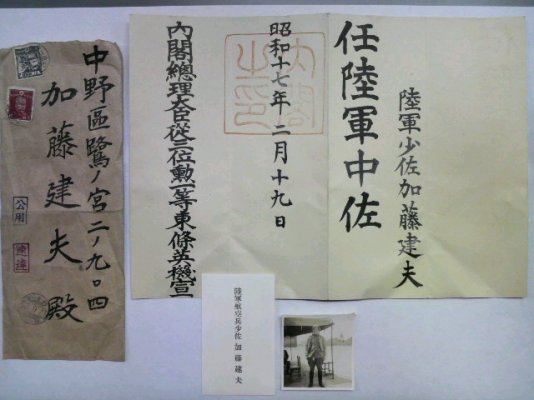 中野區鷺ノ宮二ノ九〇四
加藤建夫殿
公用
速達
陸軍少佐加藤建夫
任陸軍中佐
昭和十七年二月十九日
内閣總理大臣從三位勳一等東條英機宣
内閣之印
陸軍航空兵少佐 加藤建夫